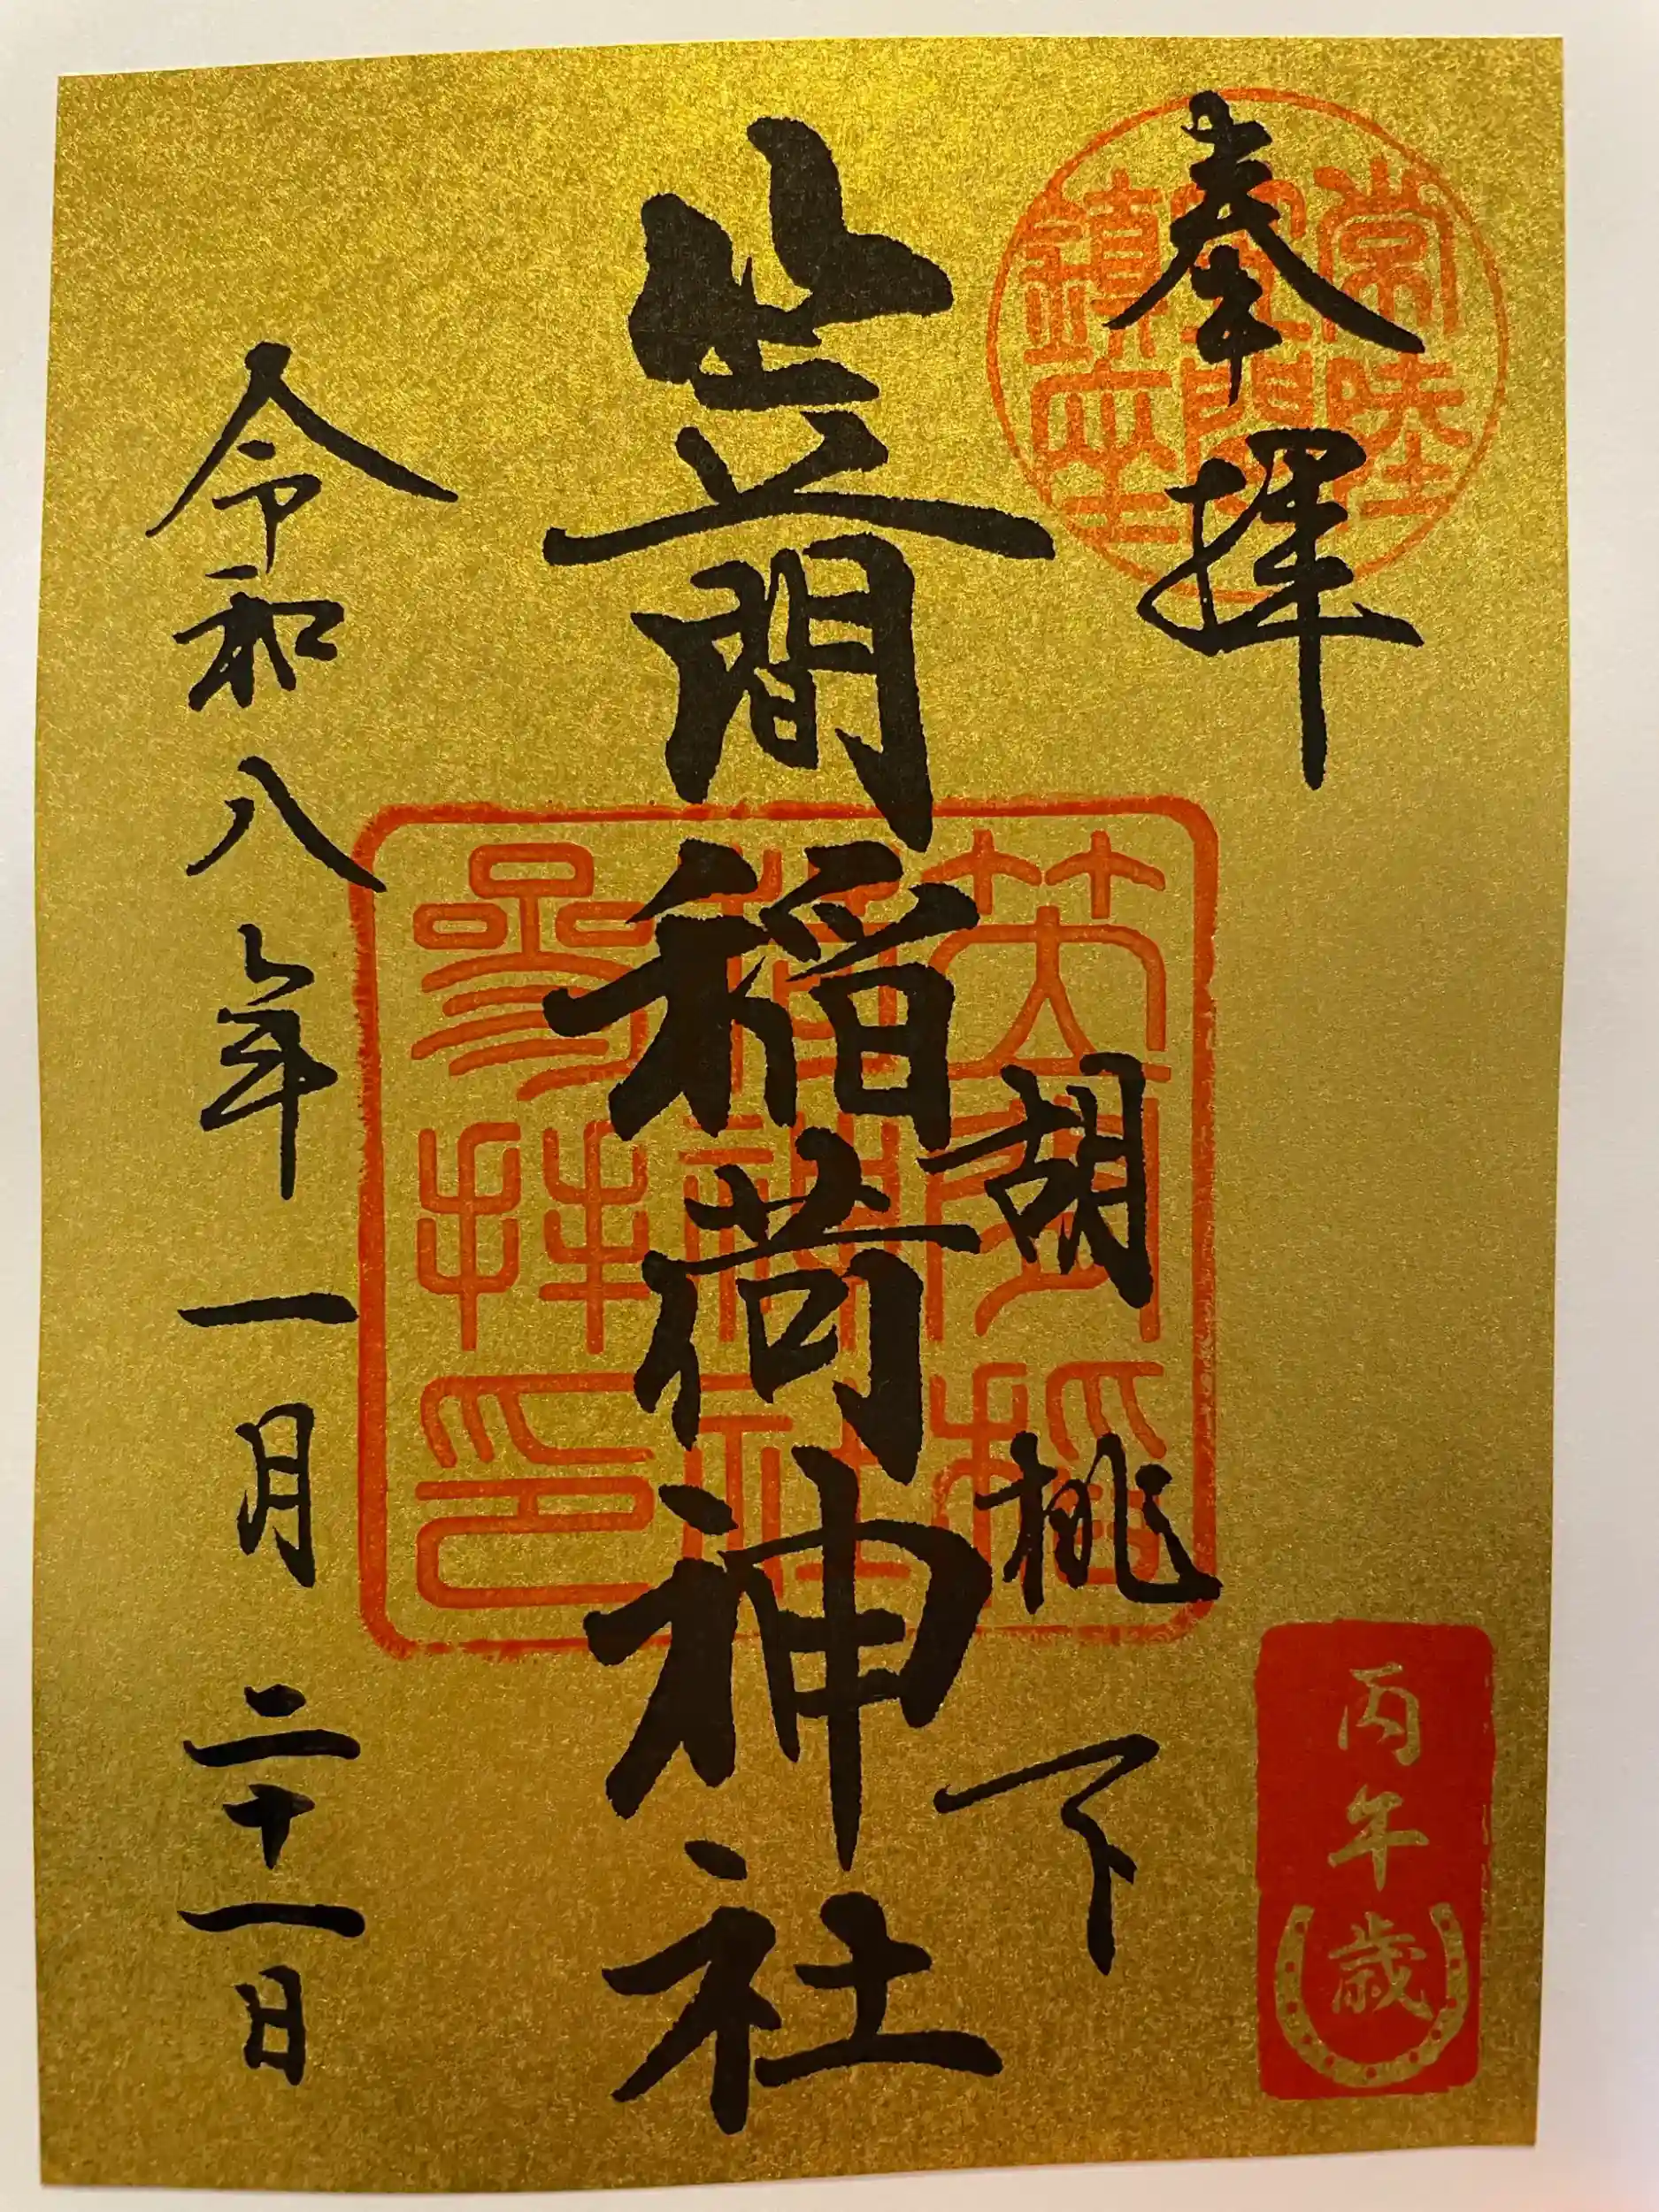 奉拝
常陸
笠間
鎮座
胡桃下
笠間稲荷神社
笠間稲
荷神社
参拝印
令和八年一月二十一日
丙午歳